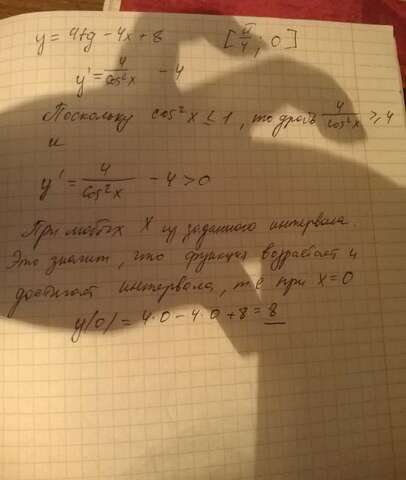 y = 4tg - 4x + 8 [π/4 ; 0]
y' = 4/cos²x - 4
Поскольку cos²x ≤ 1, то дробь 4/cos²x ≥ 4
и
y' = 4/cos²x - 4 > 0
При любых x из заданного интервала.
Это значит, что функция возрастает и
достигает интервала, т.е при x = 0
y(0) = 4·0 - 4·0 + 8 = 8